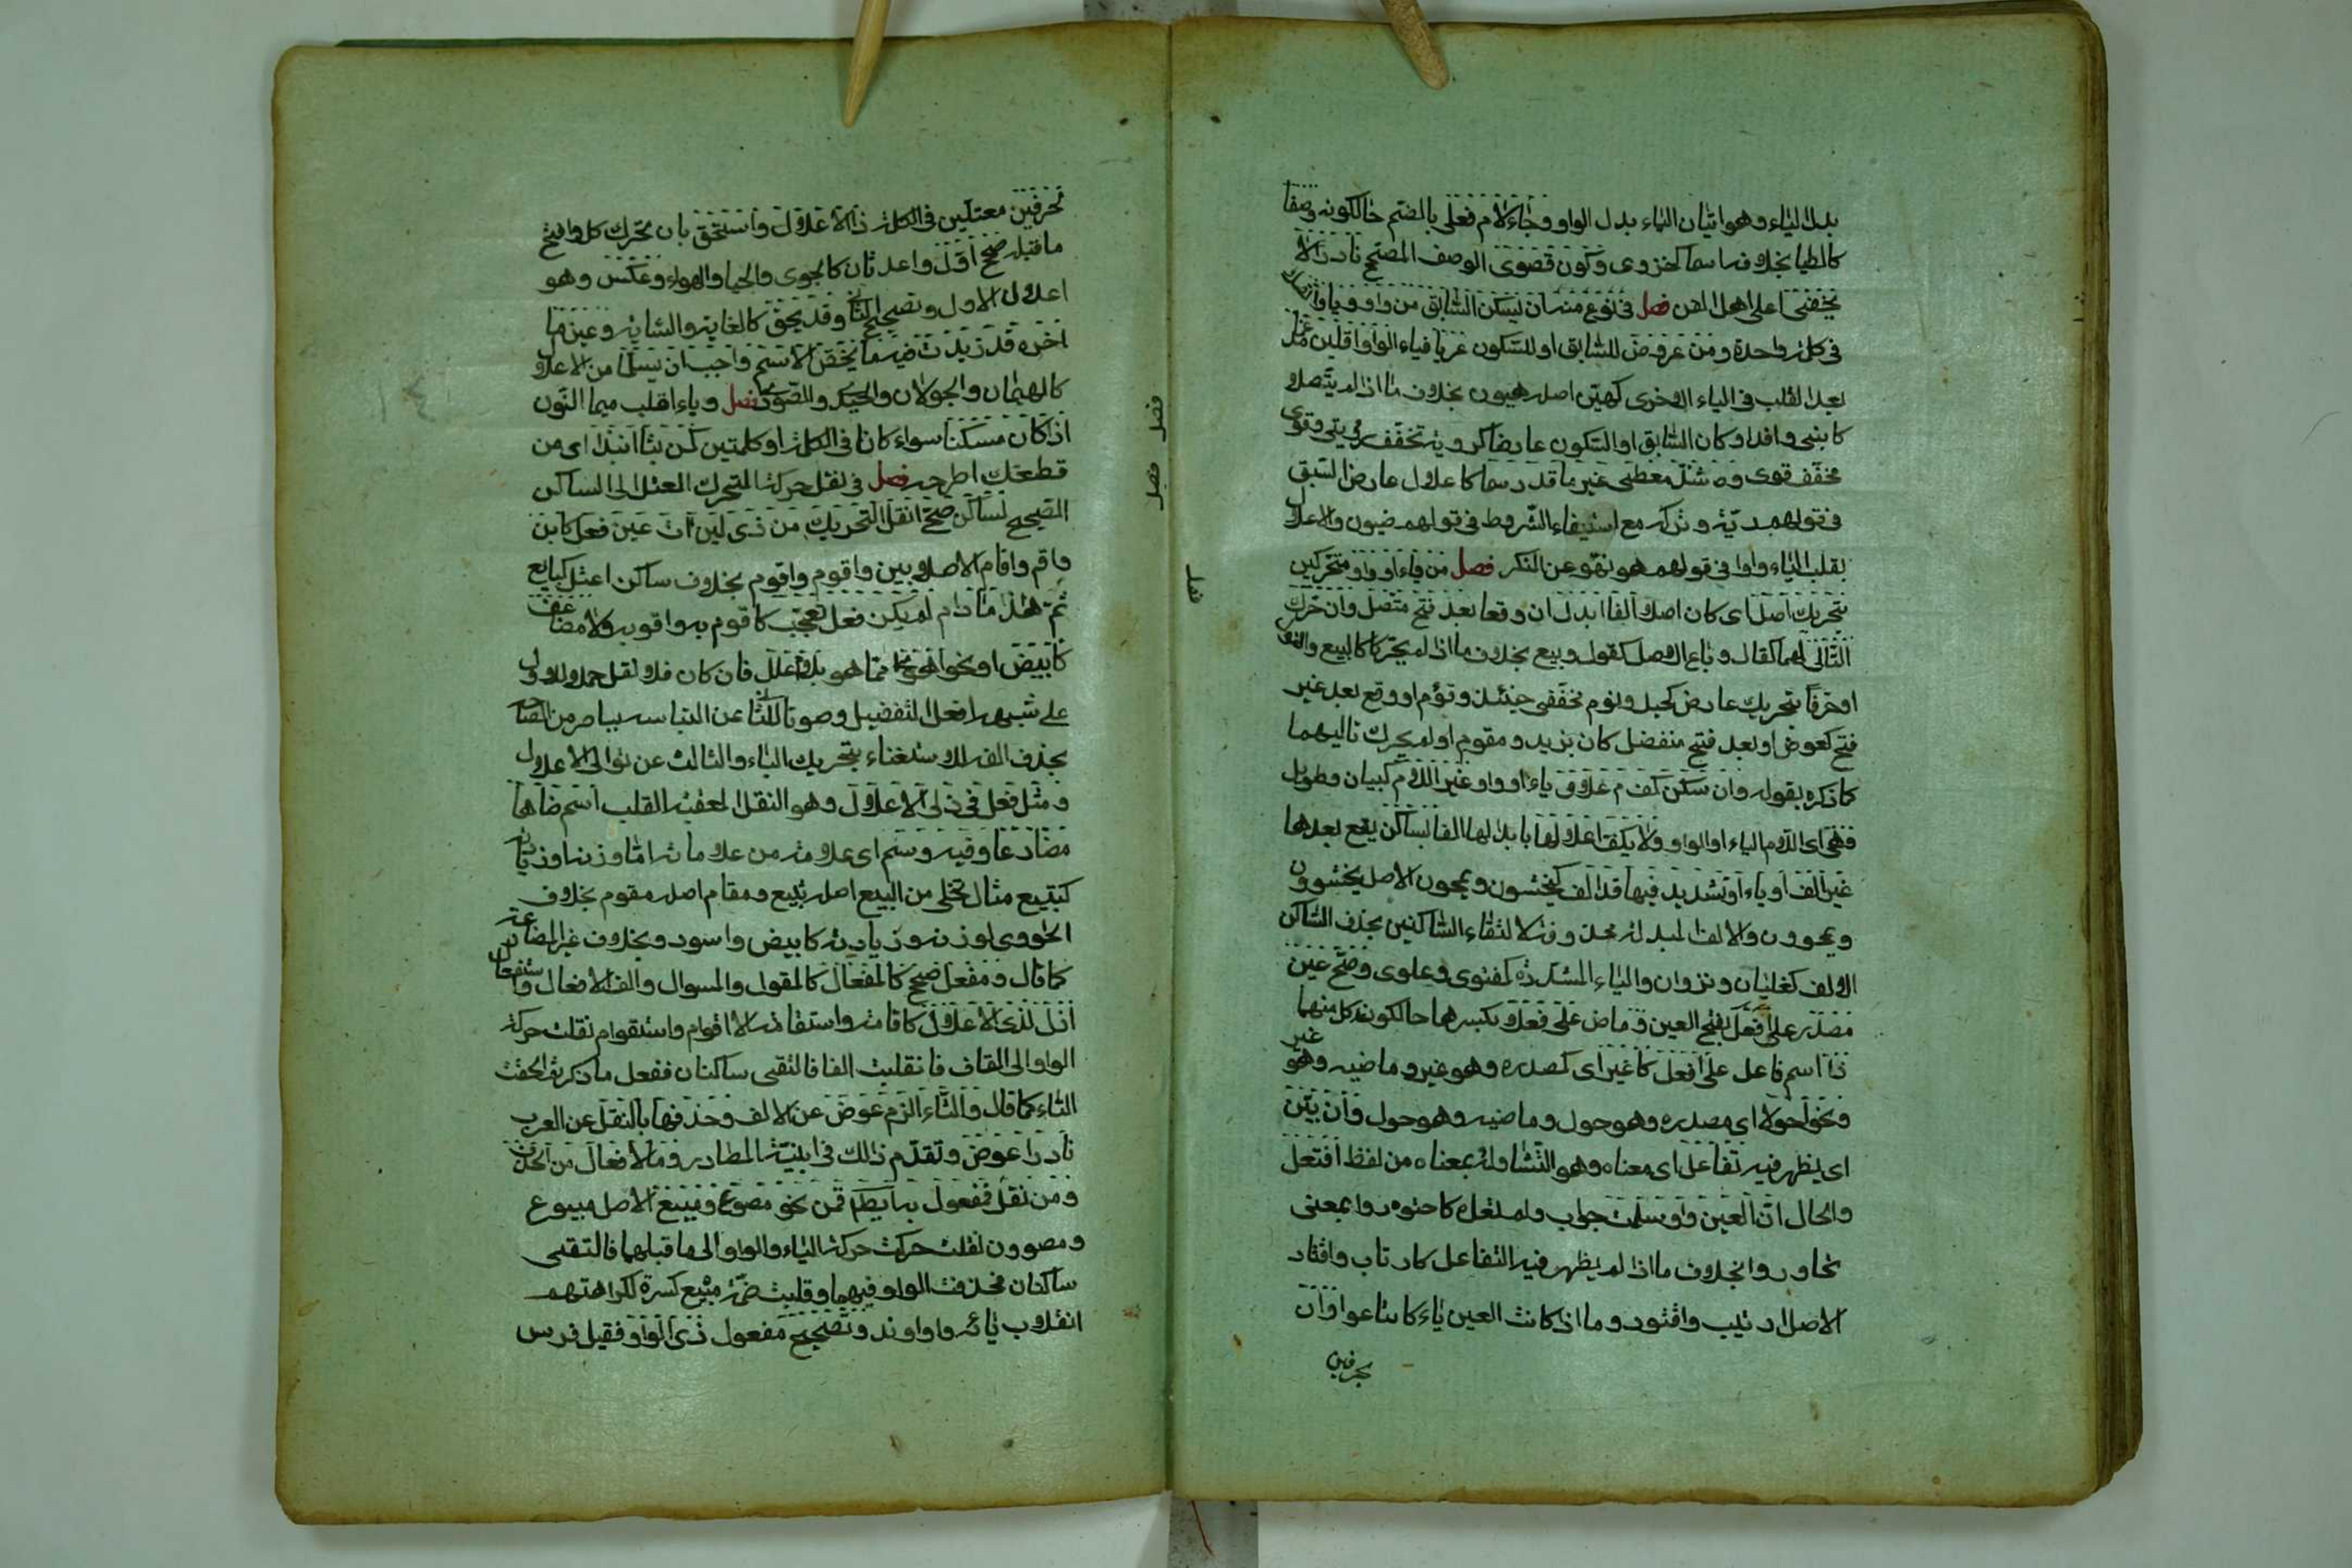 بدل الياء وهو اتيان الياء بدل الواو وجاء لام فعلى بالضم حالكونه وصفا
كالعليا بخلافه اسما كحزوى وكون قصوى الوصف المصحح نادرا لا
يخفى على اهل الفن فصل فى نوع منه ان يسكن السابق من واو ويا واتصلا
فى كلمة واحدة ومن عروض للسابق او للسكون عريا فياء الواو اقلبن مدغما
بعد القلب فى الياء الاخرى كهين اصله هيون بخلاف ما اذا لم يتصلا
كابنى وافد او كان السابق او السكون عارضا كروية تخفف رؤية وقوى
مخفف قوى وشذ معطى غير ما قد رسما كاعلال عارض السبق
فى قولهم رية وتركه مع استيفاء الشروط فى قولهم ضيون والاعلال
بقلب الياء واوا فى قولهم هو نهو عن المنكر فصل من ياء او واو متحركين
بتحريك اصل اى كان اصلا الفا ابدل ان وقعا بعد فتح متصل وان حرك
التالى لهما كقال وباع الاصل كقول وبيع بخلاف ما اذا لم يحركا كالبيع والقول
او حركا بتحريك عارض كجيل وتوم مخففى جيئل وتوءم او وقع بعد غير
فتح كعوض او بعد فتح منفصل كان يزيد ومقوم او لم يحرك تاليهما
كما ذكره بقوله وان سكن كف م علال ياء او واو غير اللام كبيان وطويل
فهى اى اللام الياء او الواو ولا يكف اعلالها بابدالها الفا بساكن يقع بعدها
غير الف او ياء او تشديد فيها قد الف كيخشون ويمحون الاصل يخشيون
ويمحوون والالف المبدلة محذوفة لالتقاء الساكنين بخلاف الساكن
الالف كغليان ونزوان والياء المشددة كفتوى وعلوى وصح عين
مصدر على فعل بفتح العين وماض على فعل بكسرها حالكون كل منهما
ذا اسم فاعل على افعل كاغير اى كمصدره وهو غير وماضيه وهو غير
ونحو احولا اى مصدره وهو حول وماضيه وهو حول وان يبن
اى يظهر فيه تفاعل اى معناه وهو التشارك بمعناه من لفظ افتعل
والحال ان العين واو سلمت جواب ولم تعل كاجتوروا بمعنى
تجاوروا بخلاف ما اذا لم يظهر فيه التفاعل كارتاب واقتاد
الاصل ارتيب واقتود وما اذا كانت العين ياء كابتاعوا وان
بحرفين
لحرفين معتلين فى الكلمة ذا الاعلال واستحق بان تحرك كل وانفتح
ما قبله صحح اول واعل ثان كالجوى والحيا والهواء وعكس وهو
اعلال الاول وتصحيح الثانى وقد يحق كالغاية والثاية وعين ما
اخره قد زيدت فيه ما يخص الاسم واجب ان يسلما من الاعلال
كالهيمان والجولان والحيدى والصورى فصل وباء اقلب ميما النون
اذا كان مسكنا سواء كانا فى الكلمة او كلمتين كمن بتا انبذا اى من
قطعك اطرحه فصل فى نقل حركة المتحرك المعتل الى الساكن
الصحيح لساكن صح انقل التحريك من ذى لين ات عين فعل كابن
واقم واقام الاصل ابين واقوم واقوم بخلاف ساكن اعتل كبايع
ثم هذا ما دام لم يكن فعل تعجب كاقوم به واقوبه ولا مضاعف
كابيض او نحو اهوى مما هو بلام علل فان كان فلا نقل حملا للاول
على شبيهه افعل التفضيل وصونا للثانى عن التباسه بباض من المضاعف
بحذف الف للاستغناء بتحريك الباء والثالث عن توالى الاعلال
ومثل فعل فى ذا الاعلال وهو النقل المعقبه القلب اسم ضاهى
مضارعا وفيه وسم اى علامة من علاماته اما وزنه او زيادته
كتبيع مثال تحلى من البيع اصله تبيع ومقام اصله مقوم بخلاف
الحاوى لوزنه وزيادته كابيض واسود وبخلاف غير المضارعة
كما قال ومفعل صحح كالمفعال كالمقول والمسوال والف الافعال واستفعال
ازل لذى الاعلال كاقامة واستقامة الاصل اقوام واستقوام نقلت حركة
الواو الى القاف فانقلبت الفا فالتقى ساكنان ففعل ما ذكر ثم الحقت
التاء كما قال والتاء الزم عوض عن الالف وحذفها بالنقل عن العرب
نادرا عوض وتقدم ذلك فى ابنية المصادر وما لافعال من الحذف
ومن نقل فمفعول به ايضا قمن نحو مصوغ ومبيع الاصل مبيوع
ومصوون نقلت حركت حركة الياء والواو الى ما قبلهما فالتقى
ساكنان فحذفت الواو فيهما وقلبت ضمة مبيع كسرة لكراهتهم
انقلاب يائه واوا وند وتصحيح مفعول ذى الواو فقيل فرس
فصل
فصل
فصل